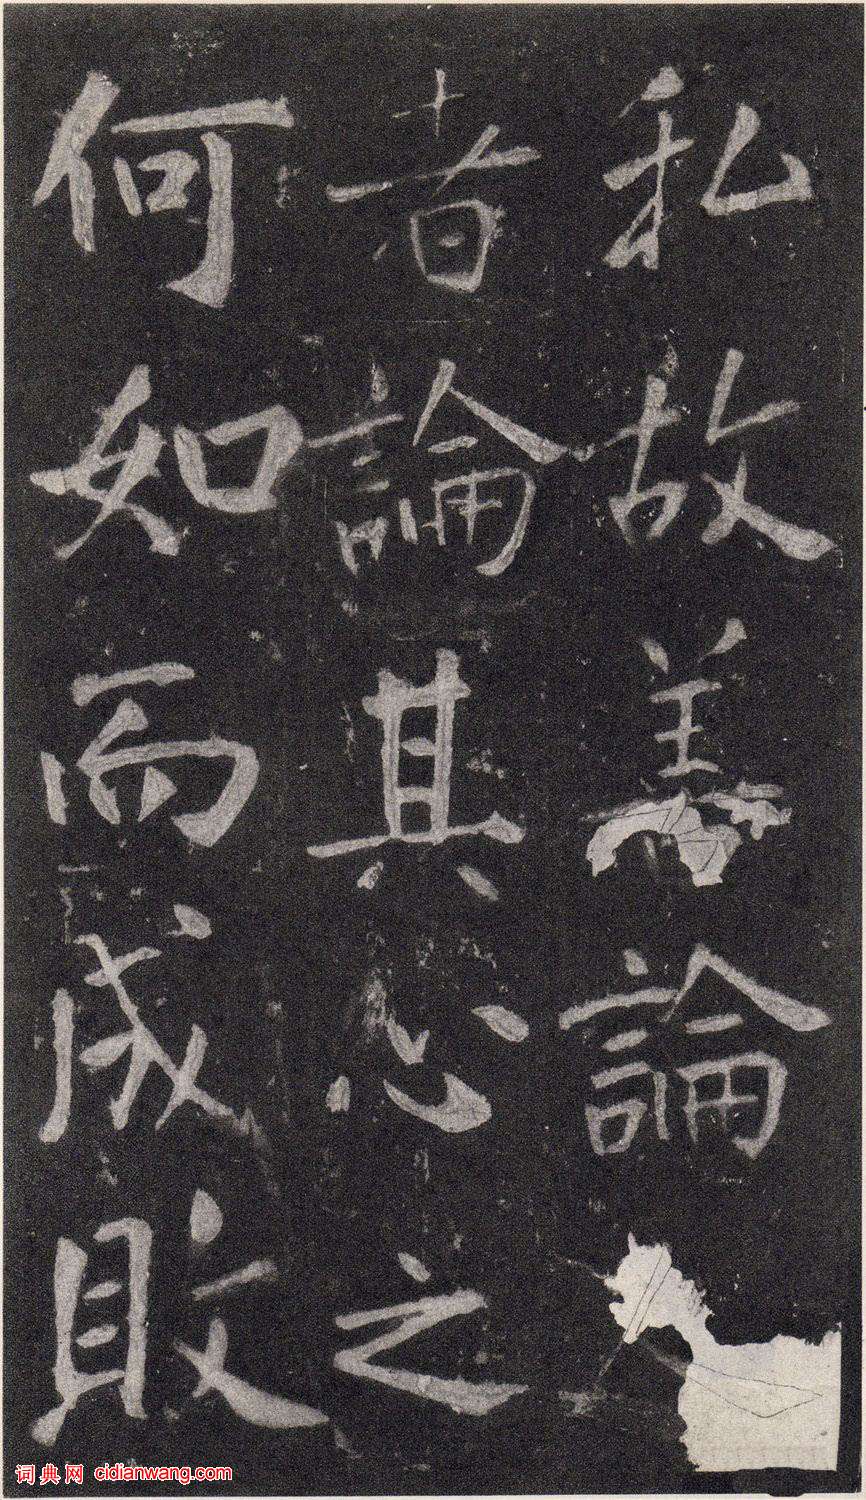 私故善論
者論其心之
何如而成敗
词典网 cidianwang.com